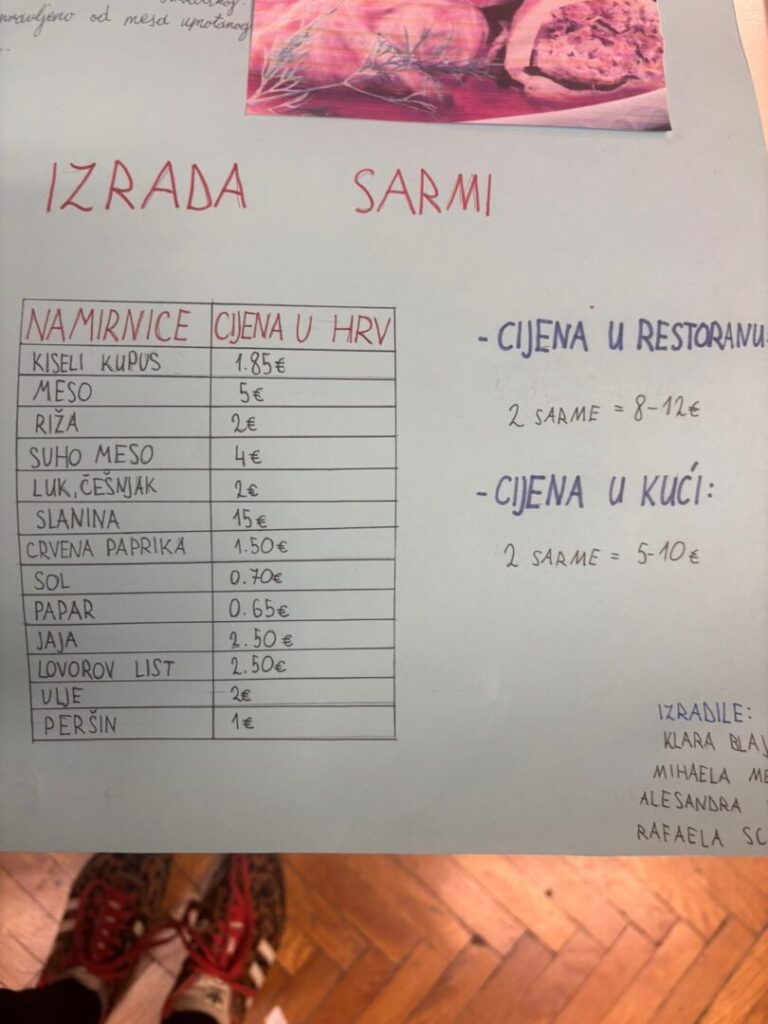 od mesa umotanog
IZRADA SARMI
NAMIRNICE CIJENA U HRV
KISELI KUPUS 1.85€
MESO 5€
RIŽA 2€
SUHO MESO 4€
LUK, ČEŠNJAK 2€
SLANINA 15€
CRVENA PAPRIKA 1.50€
SOL 0.70€
PAPAR 0.65€
JAJA 2.50€
LOVOROV LIST 2.50€
ULJE 2€
PERŠIN 1€
- CIJENA U RESTORANU:
2 SARME = 8-12€
- CIJENA U KUĆI:
2 SARME = 5-10€
IZRADILE:
KLARA
MIHAELA
ALESANDRA
RAFAELA